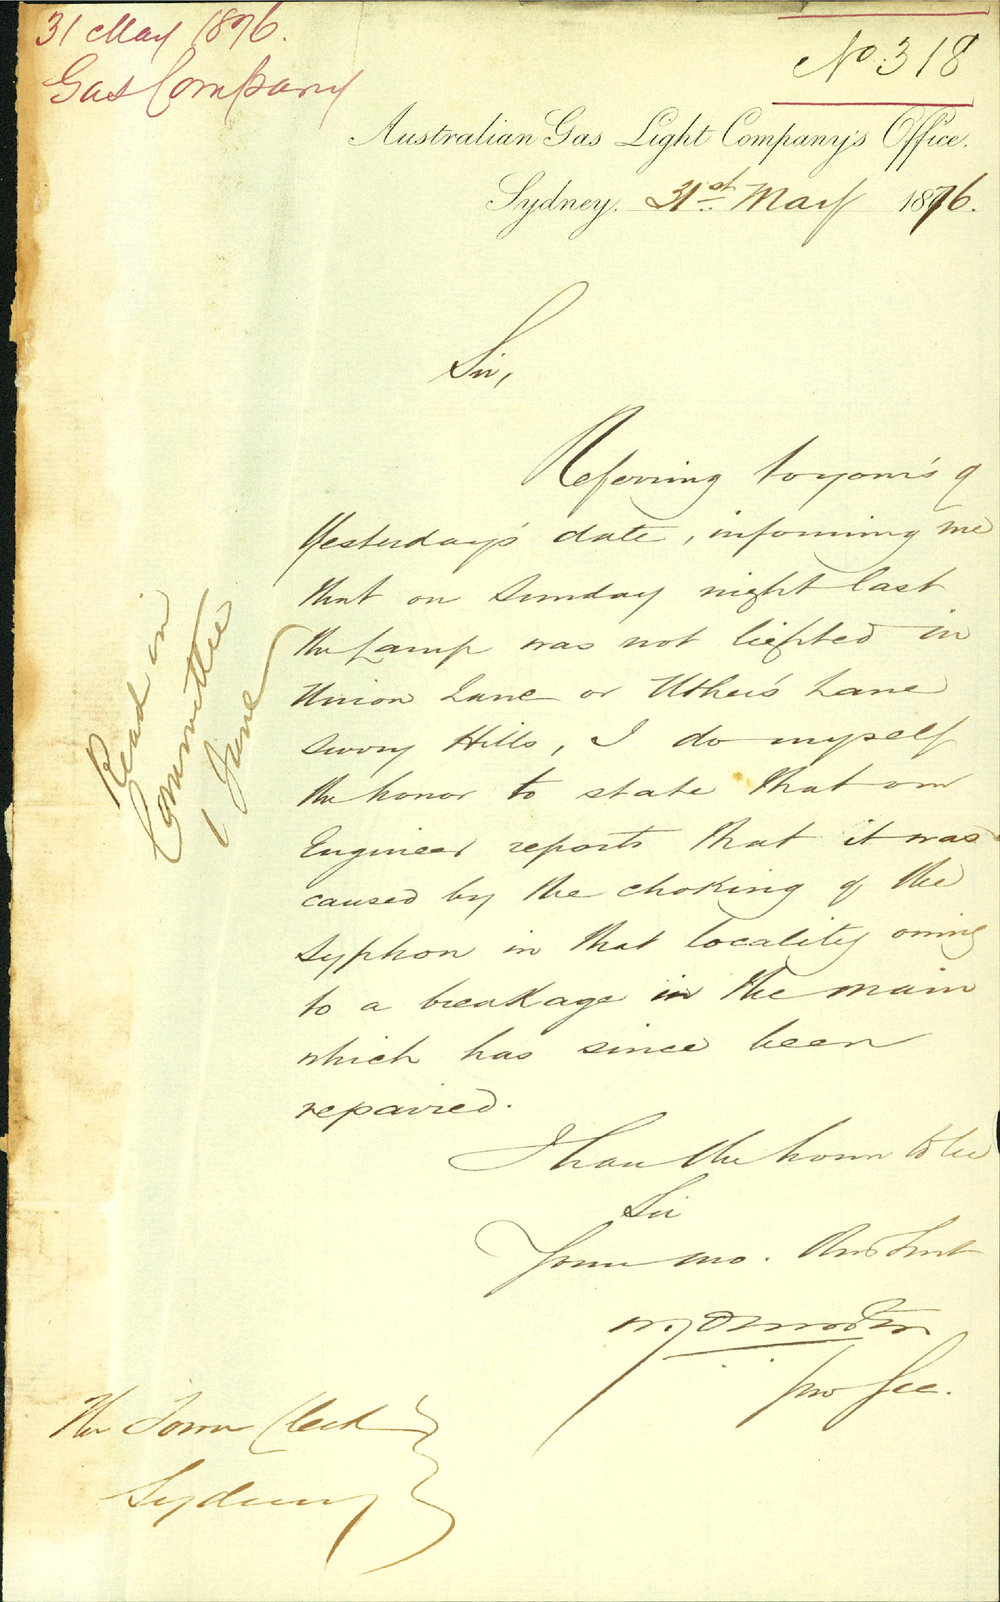 31 May 1876.
Gas Company
No 318
Australian Gas Light Company's Office.
Sydney. 31st May 1876.
Sir,
Referring to yours of
Yesterday's date, informing me
that on Sunday night last
the Lamp was not lighted in
Union Lane or Uther's Lane
Surry Hills, I do myself
the honor to state that our
Engineer reports that it was
caused by the choking of the
Syphon in that locality owing
to a breakage in the main
which has since been
repaired.
I have the honor to be
Sir
Your mo. Obed Servt
pro Sec.
The Town Clerk
Sydney
Read in
Committee
1 June